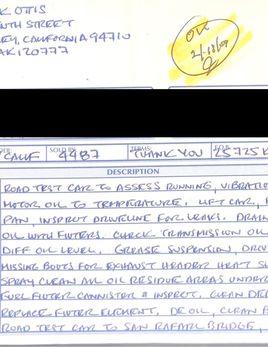 K OTIS
NTH STREET
EY, CALIFORNIA 94710
AK120777
OK
SOLD BY
TERMS
CALIF 4487 THANK YOU 25725K
DESCRIPTION
ROAD TEST CAR TO ASSESS RUNNING, VIBRATIO
MOTOR OIL TO TEMPERATURE. LIFT CAR, R
PAN, INSPECT DRIVELINE FOR LEAKS. DRAIN
OIL WITH FILTERS. CHECK TRANSMISSION OIL
DIFF OIL LEVEL. GREASE SUSPENSION, DRIVE
MISSING BOLTS FOR EXHAUST HEADER HEAT SH
SPRAY CLEAN ALL OIL RESIDUE AREAS UNDER
FUEL FILTER CANNISTER & INSPECT. CLEAN
REPLACE FILTER ELEMENT. DE OIL, CLEAN
ROAD TEST CAR TO SAN RAFAEL BRIDGE,